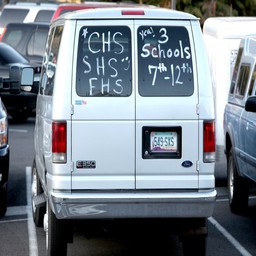 *CHS
SHS
FHS
yea! 3
Schools
7th-12ths
E350
Ford
549-SXS